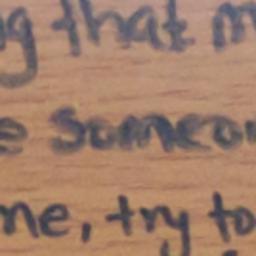 g that m
e someon
me, try to